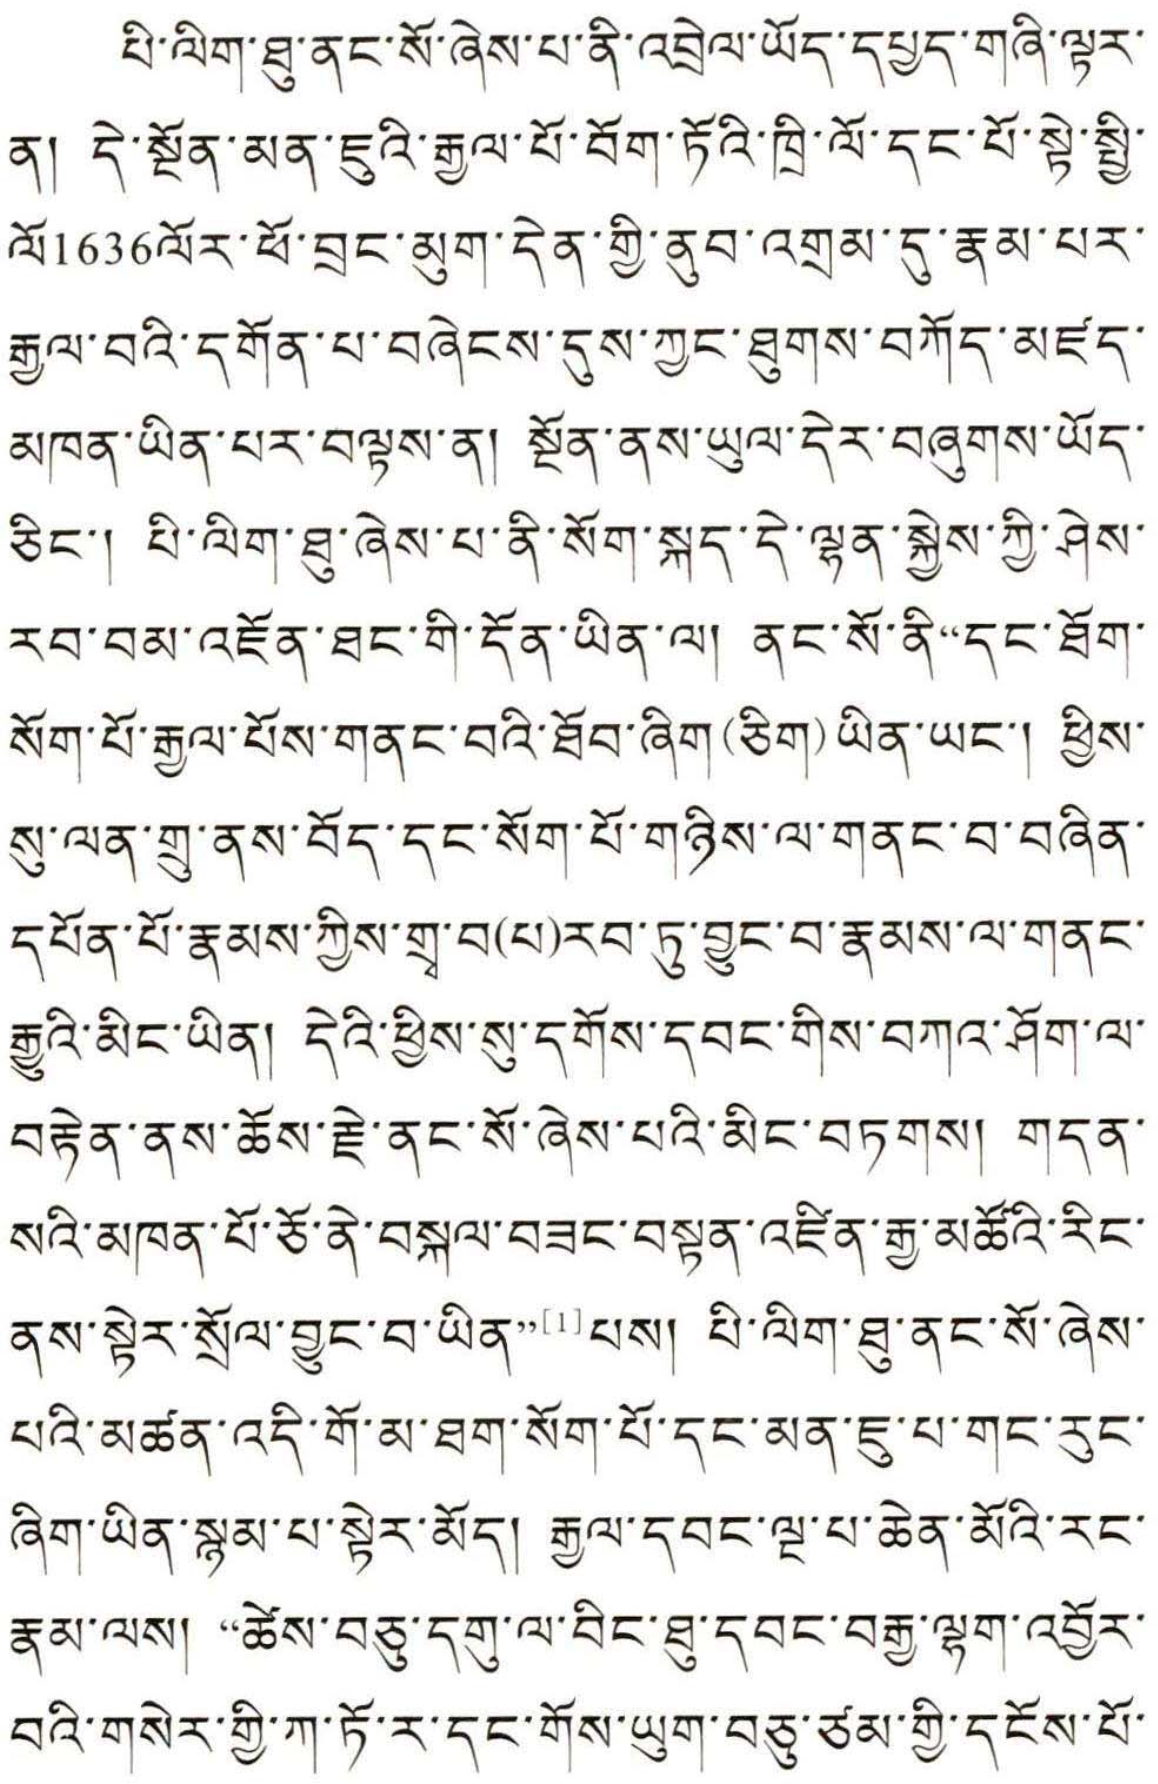 པི་ལིག་ཐུ་ནང་སོ་ཞེས་པ་ནི་འབྲེལ་ཡོད་དཔྱད་གཞི་ལྟར་
ན། དེ་སྔོན་མན་ཇུའི་རྒྱལ་པོ་བོག་ཏོའི་ཁྲི་ལོ་དང་པོ་སྟེ་སྤྱི་
ལོ1636ལོར་ཕོ་བྲང་མུག་དེན་གྱི་ནུབ་འགྲམ་དུ་རྣམ་པར་
རྒྱལ་བའི་དགོན་པ་བཞེངས་དུས་ཀྱང་ཐུགས་བཀོད་མཛད་
མཁན་ཡིན་པར་བལྟས་ན། སྔོན་ནས་ཡུལ་དེར་བཞུགས་ཡོད་
ཅིང་། པི་ལིག་ཐུ་ཞེས་པ་ནི་སོག་སྐད་དེ་ལྷན་སྐྱེས་ཀྱི་ཤེས་
རབ་བམ་འཇོན་ཐང་གི་དོན་ཡིན་ལ། ནང་སོ་ནི“དང་ཐོག་
སོག་པོ་རྒྱལ་པོས་གནང་བའི་ཐོབ་ཞིག(ཅིག)ཡིན་ཡང་། ཕྱིས་
སུ་ལན་གྲུ་ནས་བོད་དང་སོག་པོ་གཉིས་ལ་གནང་བ་བཞིན་
དཔོན་པོ་རྣམས་ཀྱིས་གྲྭ་བ(པ)རབ་ཏུ་བྱུང་བ་རྣམས་ལ་གནང་
རྒྱུའི་མིང་ཡིན། དེའི་ཕྱིས་སུ་དགོས་དབང་གིས་བཀའ་ཤོག་ལ་
བརྟེན་ནས་ཆོས་རྗེ་ནང་སོ་ཞེས་པའི་མིང་བཏགས། གདན་
སའི་མཁན་པོ་ཅོ་ནེ་བསྐལ་བཟང་བསྟན་འཛིན་རྒྱ་མཚོའི་རིང་
ནས་སྟེར་སྲོལ་བྱུང་བ་ཡིན”[1]པས། པི་ལིག་ཐུ་ནང་སོ་ཞེས་
པའི་མཚན་འདི་གོ་མ་ཐག་སོག་པོ་དང་མན་ཇུ་པ་གང་རུང་
ཞིག་ཡིན་སྙམ་པ་སྟེར་མོད། རྒྱལ་དབང་ལྔ་པ་ཆེན་མོའི་རང་
རྣམ་ལས། “ཚེས་བཅུ་དགུ་ལ་བིང་ཐུ་དབང་བརྒྱ་ལྷག་འབྱོར་
བའི་གསེར་གྱི་ཀ་ཏོ་ར་དང་གོས་ཡུག་བཅུ་ཙམ་གྱི་དངོས་པོ་